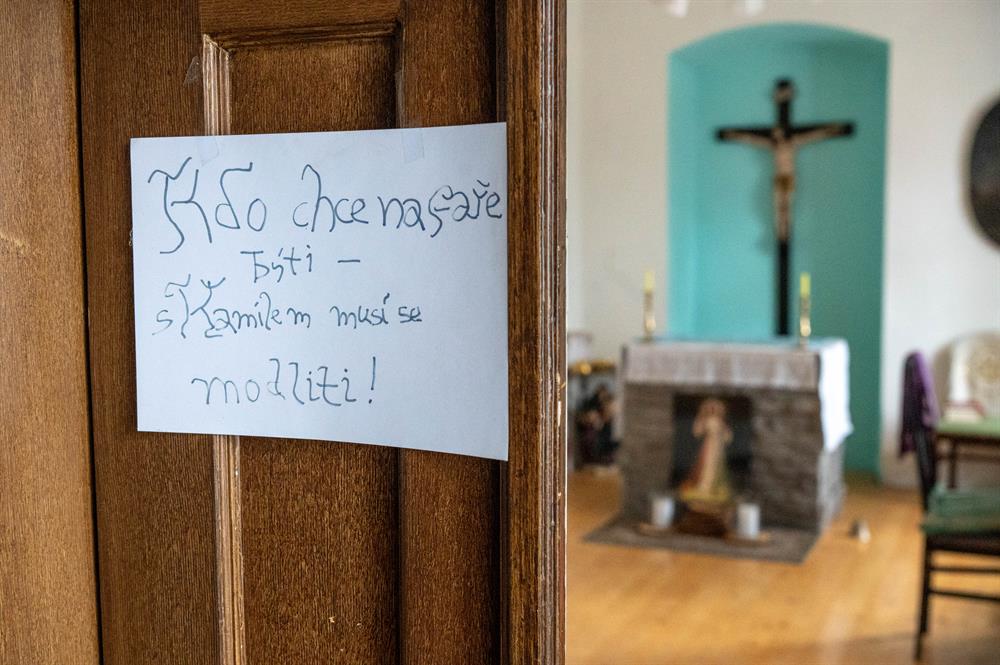 Kdo chce na faře
býti –
s Kamilem musí se
modliti!